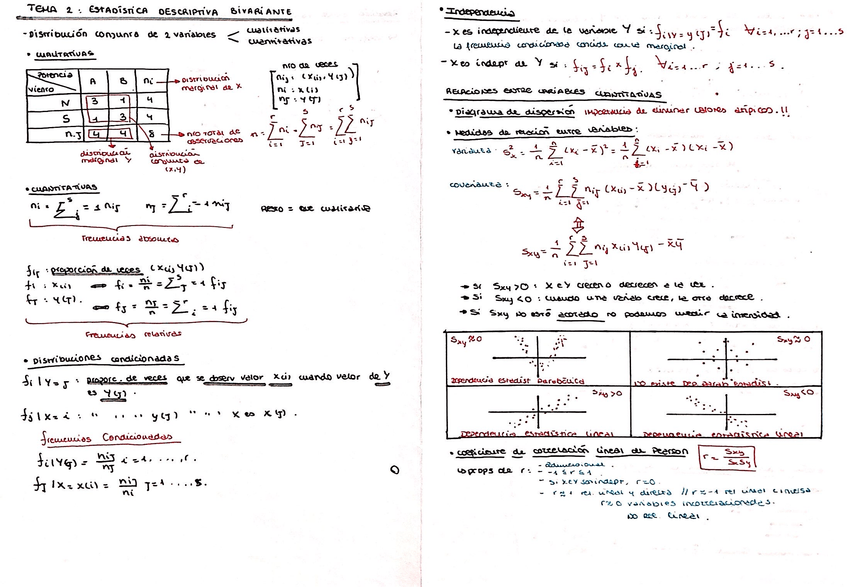 TEMA 2: ESTADÍSTICA DESCRIPTIVA BIVARIANTE
- Distribución conjunta de 2 variables < cualitativas
cuantitativas
• CUALITATIVAS
Potencia
Viento
A B ni → Distribución marginal de X
N 3 1 4
S 1 3 4
n.j 4 4 8 → nro total de observaciones
distribución marginal Y
distribución conjunta de (X,Y)
nro de veces
nij: (x(i), y(j))
ni: x(i)
nj: y(j)
n = Σ ni = Σ nj = Σ Σ nij
• CUANTITATIVAS
ni = Σ j=1 nij nj = Σ i=1 nij RESTO = que cualitativa
Frecuencias absolutas
fij: proporción de veces (x(i), y(j))
fi: x(i) ⟺ fi = ni/n = Σ j=1 fij
fj: y(j). ⟺ fj = nj/n = Σ i=1 fij
Frecuencias relativas
• Distribuciones condicionadas
fi|Y=j: proporc. de veces que se observ valor x(i) cuando valor de Y
es y(j).
fj|X=i: " " " y(j) " " " X es x(i).
Frecuencias Condicionadas
fi|Y(j) = nij/nj i=1,...,r.
fj|X=x(i) = nij/ni j=1...,s.
• Independencia
- X es independiente de la variable Y si: fi|Y=y(j) = fi ∀i=1,...r; j=1...s
la frecuencia condicionada coincide con la marginal.
- X es indepte de Y si: fij = fi × fj. ∀i=1...r; j=1...s.
RELACIONES ENTRE VARIABLES CUANTITATIVAS
• Diagrama de dispersión importancia de eliminar valores atípicos.!!
• Medidas de relación entre variables:
varianza: S²x = 1/n Σ (xi - x̄)² = 1/n Σ (xi - x̄)(xi - x̄)
covarianza: Sxy = 1/n Σ Σ nij (x(i) - x̄)(y(j) - ȳ)
Sxy = 1/n Σ Σ nij x(i) y(j) - x̄ȳ
→ Si Sxy>0: X e Y crecen o decrecen a la vez.
→ Si Sxy<0: cuando una variab crece, la otra decrece.
→ Si Sxy no está acotado no podemos medir la intensidad.
Sxy≈0
Dependencia estadíst parabólica
Sxy≈0
No existe dep. estadíst.
Sxy>0
Dependencia estadística lineal
Sxy<0
Dependencia estadística lineal
• Coeficiente de correlación lineal de Pearson r = Sxy/SxSy
props de r: - adimensional.
- -1≤r≤1
- si X e Y son indepr, r=0.
- r≈1 rel lineal y directa // r≈-1 rel lineal e inversa
r≈0 variables incorrelacionadas.
No rel. lineal.